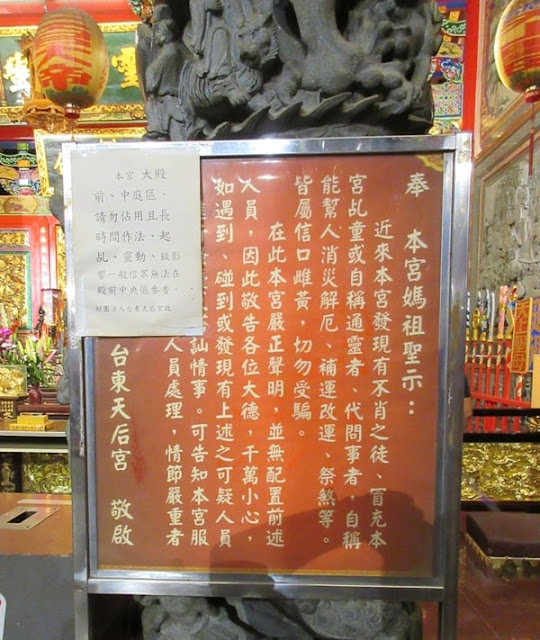 奉 本宮媽祖聖示：
近來本宮發現有不肖之徒、冒充本
宮乩童或自稱通靈者、代問事者，自稱
能幫人消災解厄、補運改運、祭煞等。
皆屬信口雌黃，切勿受騙。
在此本宮嚴正聲明，並無配置前述
人員，因此敬告各位大德，千萬小心，
如遇到、碰到或發現有上述之可疑人員
訕情事。可告知本宮服
人員處理，情節嚴重者
台東天后宮 敬啟
本宮 大殿
前、中庭區、
請勿佔用且長
時間作法、起
乩、靈動、致影
響一般信眾無法在
殿前中央區參香。
財團法人台東天后宮啟